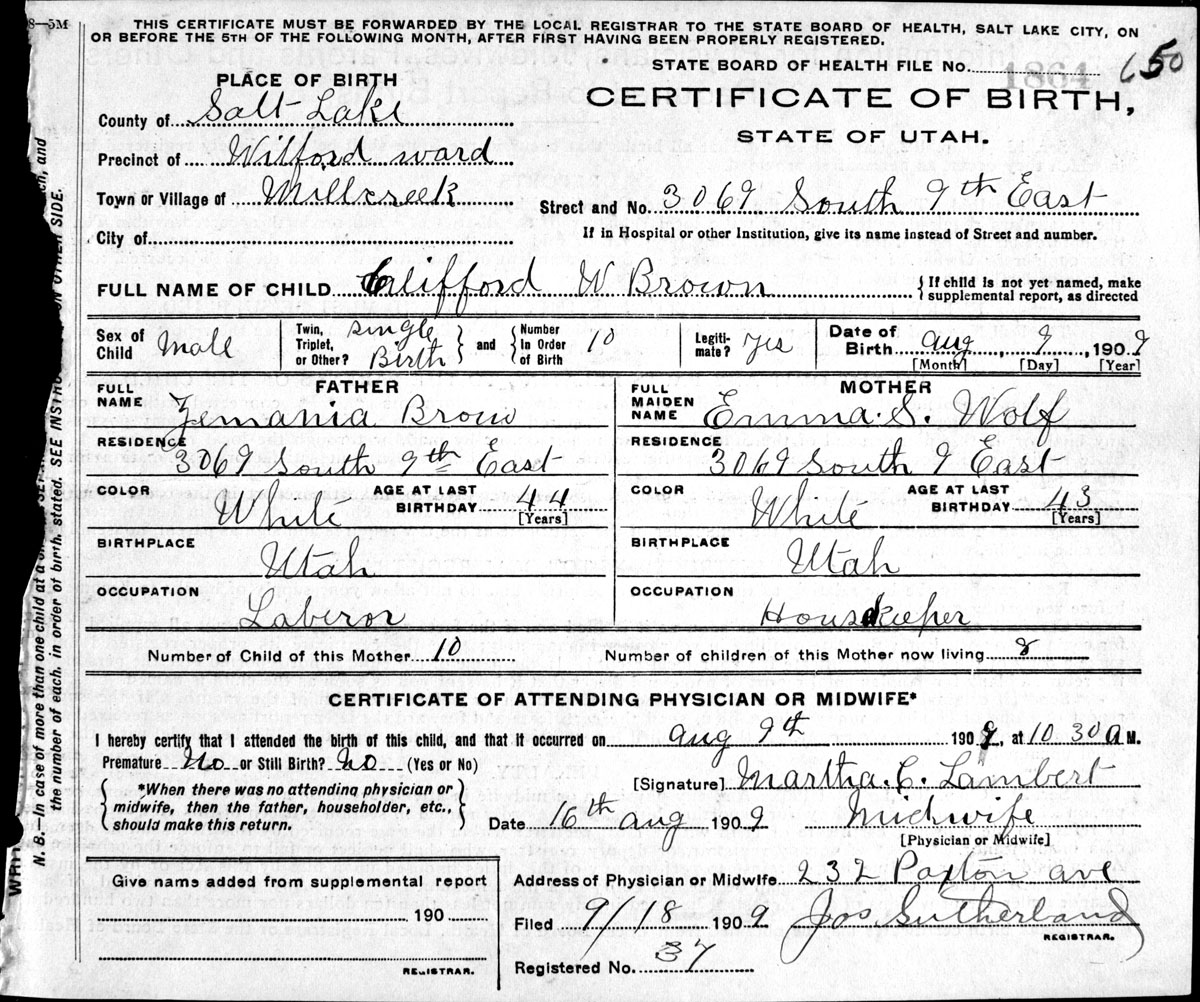 8—5M
THIS CERTIFICATE MUST BE FORWARDED BY THE LOCAL REGISTRAR TO THE STATE BOARD OF HEALTH, SALT LAKE CITY, ON
OR BEFORE THE 5TH OF THE FOLLOWING MONTH, AFTER FIRST HAVING BEEN PROPERLY REGISTERED.
STATE BOARD OF HEALTH FILE No. 1864 650
PLACE OF BIRTH
CERTIFICATE OF BIRTH,
STATE OF UTAH.
County of Salt Lake
Precinct of Wilford ward
Town or Village of Millcreek
Street and No. 3069 South 9th East
City of
If in Hospital or other Institution, give its name instead of Street and number.
FULL NAME OF CHILD Clifford W Brown
If child is not yet named, make
supplemental report, as directed
Sex of Child Male
Twin, Triplet, or Other? Single Birth
and
Number In Order of Birth 10
Legitimate? Yes
Date of Birth Aug, 9, 1909
[Month] [Day] [Year]
FATHER
FULL NAME Zemania Brow
RESIDENCE 3069 South 9th East
COLOR White AGE AT LAST BIRTHDAY 44 [Years]
BIRTHPLACE Utah
OCCUPATION Laberor
MOTHER
FULL MAIDEN NAME Emma. S. Wolf
RESIDENCE 3069 South 9 East
COLOR White AGE AT LAST BIRTHDAY 43 [Years]
BIRTHPLACE Utah
OCCUPATION Housekeeper
Number of Child of this Mother 10 Number of children of this Mother now living 8
CERTIFICATE OF ATTENDING PHYSICIAN OR MIDWIFE*
I hereby certify that I attended the birth of this child, and that it occurred on Aug 9th 1909, at 10 30 A M.
Premature No or Still Birth? No (Yes or No)
[Signature] Martha. C. Lambert
*When there was no attending physician or
midwife, then the father, householder, etc.,
should make this return.
Date 16th Aug 1909 Midwife
[Physician or Midwife]
Give name added from supplemental report
190
REGISTRAR.
Address of Physician or Midwife 232 Paxton ave
Filed 9/18 1909 Jos Sutherland
REGISTRAR.
Registered No. 37
N. B. In case of more than one child at a
the number of each, in order of birth, stated. SEE INSTRU ON OTHER SIDE.